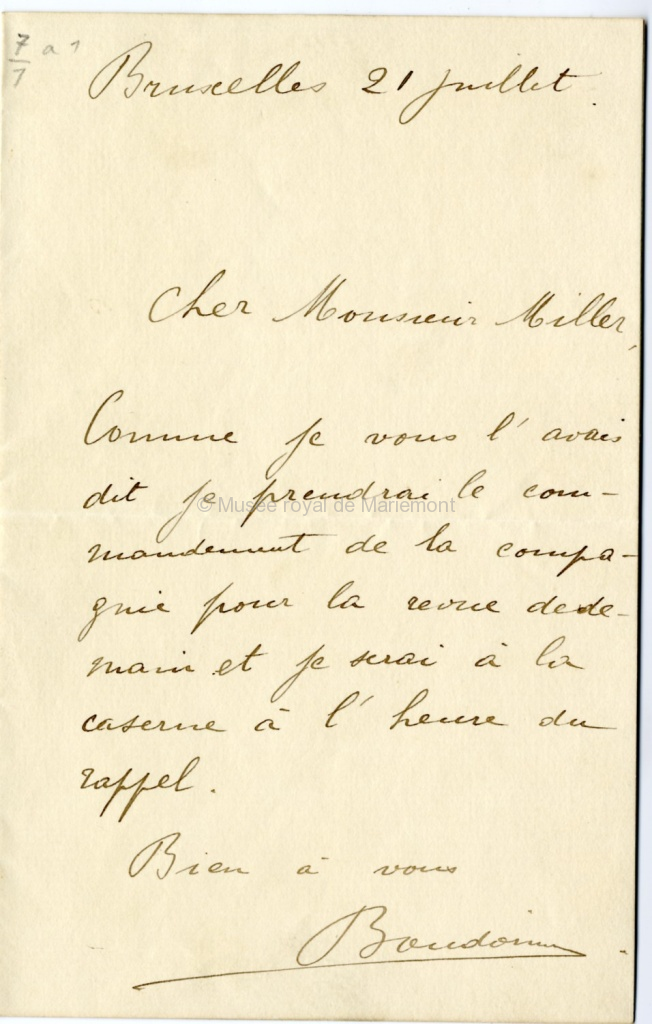 7 a 1
1
Bruxelles 21 juillet.
Cher Monsieur Miller,
Comme je vous l'avais
dit je prendrai le com-
© Musée royal de Mariemont
mandement de la compa-
gnie pour la revue de de-
main et je serai à la
caserne à l'heure du
rappel.
Bien à vous
Baudouin